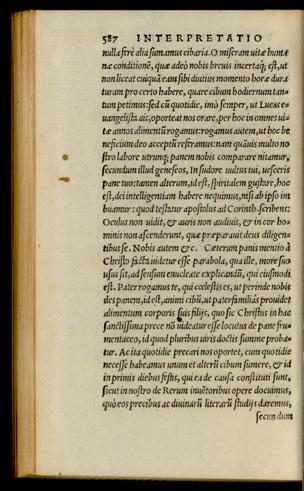 587 INTERPRETATIO
nulla ferè alia sumamus cibaria. O miseram uitæ humanæ
næ conditionẽ, quæ adeò nobis breuis incertaq́; est, ut
non liceat cuiquã eam sibi diutius momento horæ duraturam
turam pro certo habere, quare cibum hodiernum tantum
tum petimus: sed cũ quotidie, imò semper, ut Lucas euangelista
uangelista ait, oporteat nos orare, per hoc in omnes uitæ
tæ annos alimentũ rogamus: rogamus autem, ut hoc beneficium
neficium deo acceptũ referamus: nam quãuis multo nostro
stro labore utrunq; panem nobis comparare nitamur,
secundum illud geneseos, In sudore uultus tui, uesceris
pane tuo: tamen alterum, id est, spiritalem gustare, hoc
est, dei intelligentiam habere nequimus, nisi ab ipso imbuamur
buamur: quod testatur apostolus ad Corinth. scribens:
Oculus non uidit, & auris non audiuit, & in cor hominis
minis non ascenderunt, quæ præparauit deus diligentibus
tibus se. Nobis autem &c. Cæterum panis mentio à
Christo facta uidetur esse parabola, qua ille, more suo
usus sit, ad sensum enucleate explicandũ, qui eiusmodi
est. Pater rogamus te, qui cœlestis es, ut perinde nobis
des panem, id est, animi cibũ, ut paterfamiliâs prouidet
alimentum corporis suis filijs, quo sic Christus in hac
sanctissima prece nõ uideatur esse locutus de pane frumentaceo
mentaceo, id quod pluribus uiris doctis summe probatur
tur. Ac ita quotidie precari nos oportet, cum quotidie
necesse habeamus unum et alterũ cibum sumere, & id
in primis diebus festis, qui ea de causa constituti sunt,
sicut in nostro de Rerum inuẽtoribus opere docuimus,
quò eos precibus ac diuinarũ literarũ studijs daremus,
secundum